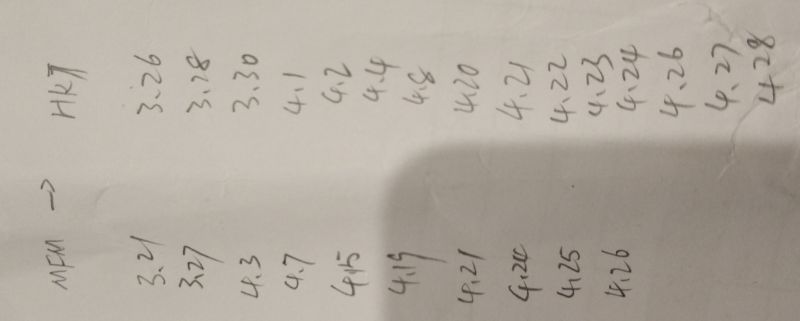 MFM → HKT
3.21 3.26
3.27 3.28
4.3 3.30
4.7 4.1
4.15 4.2
4.19 4.4
4.8
4.21 4.20
4.24 4.21
4.25 4.22
4.26 4.23
4.24
4.26
4.27
4.28